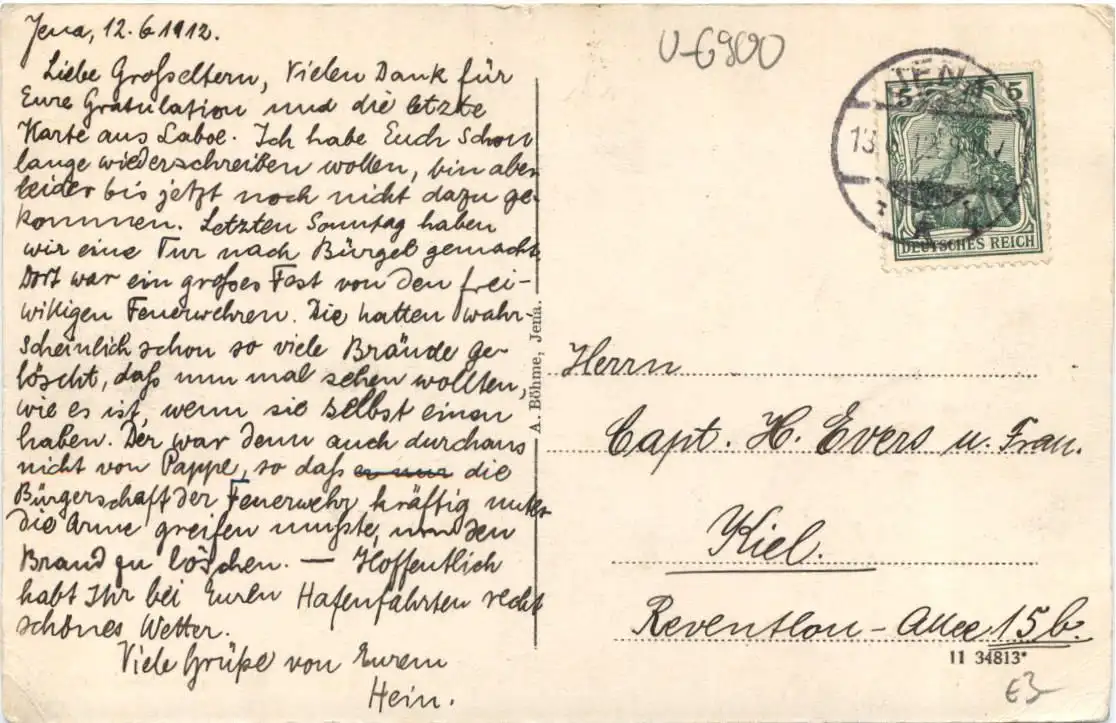 Jena, 12.6.1912.
Liebe Großeltern, Vielen Dank für
Eure Gratulation und die letzte
Karte aus Laboe. Ich habe Euch schon
lange wiederschreiben wollen, bin aber
leider bis jetzt noch nicht dazu ge-
kommen. Letzten Sonntag haben
wir eine Tur nach Bürgel gemacht
Dort war ein großes Fest von den frei-
willigen Feuerwehren. Die hatten wahr-
scheinlich schon so viele Brände ge-
löscht, daß nun mal sehen wollten,
wie es ist, wenn sie selbst einen
haben. Der war denn auch durchaus
nicht von Pappe, so daß er nur die
Bürgerschaft der Feuerwehr kräftig unter
die Arme greifen mußte, um den
Brand zu löschen. — Hoffentlich
habt Ihr bei Euren Hafenfahrten recht
schönes Wetter.
Viele Grüße von Eurem
Hein.
A. Böhme, Jena.
U-6900
JENA
13.
5 5
DEUTSCHES REICH
Herrn
Capt. H. Evers u. Frau.
Kiel.
Reventlou-Allee 15b.
11 34813*
€3